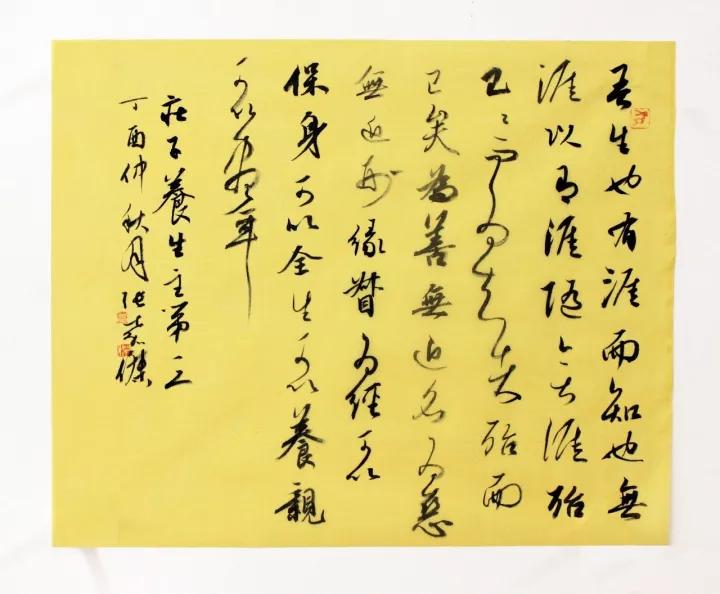 吾生也有涯而知也無
涯以有涯隨無涯殆
已々而為知者殆而
已矣為善無近名為惡
無近刑緣督為經可以
保身可以全生可以養親
可以盡年
莊子養生主第三
丁酉仲秋月張傑